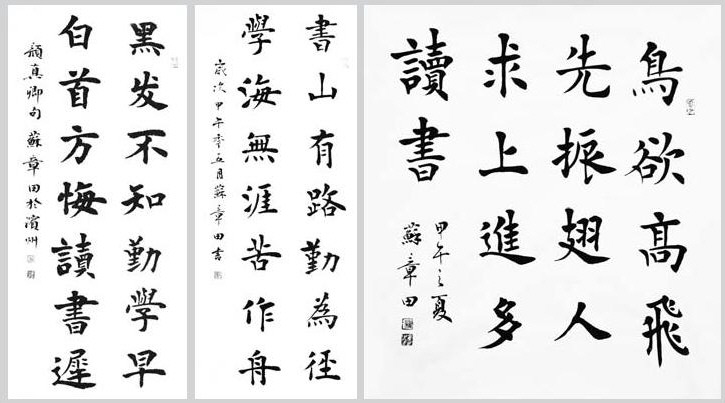 黑发不知勤學早
白首方悔讀書遲
顏真卿句 蘇章田於濱州
書山有路勤為径
學海無涯苦作舟
歲次甲午秊五月蘇章田書
鳥欲高飛
先振翅人
求上進多
讀書
甲午之夏
蘇章田